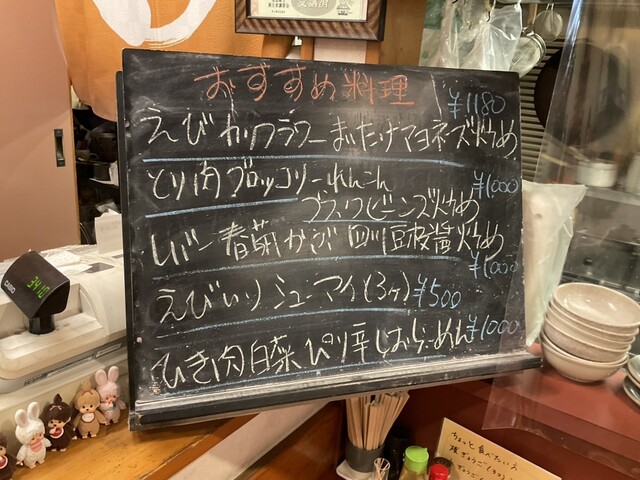 おすすめ料理
¥1180
えびカリフラワーまいたけマヨネーズ炒め
とり肉ブロッコリーれんこん
¥1000
ブラックビーンズ炒め
レバー春菊かぶ四川豆板醤炒め
¥1000
えびいりシューマイ(3ヶ)¥500
ひき肉白菜ぴり辛しおらーめん¥1000
3410
CASIO
ちょっと食べたい人